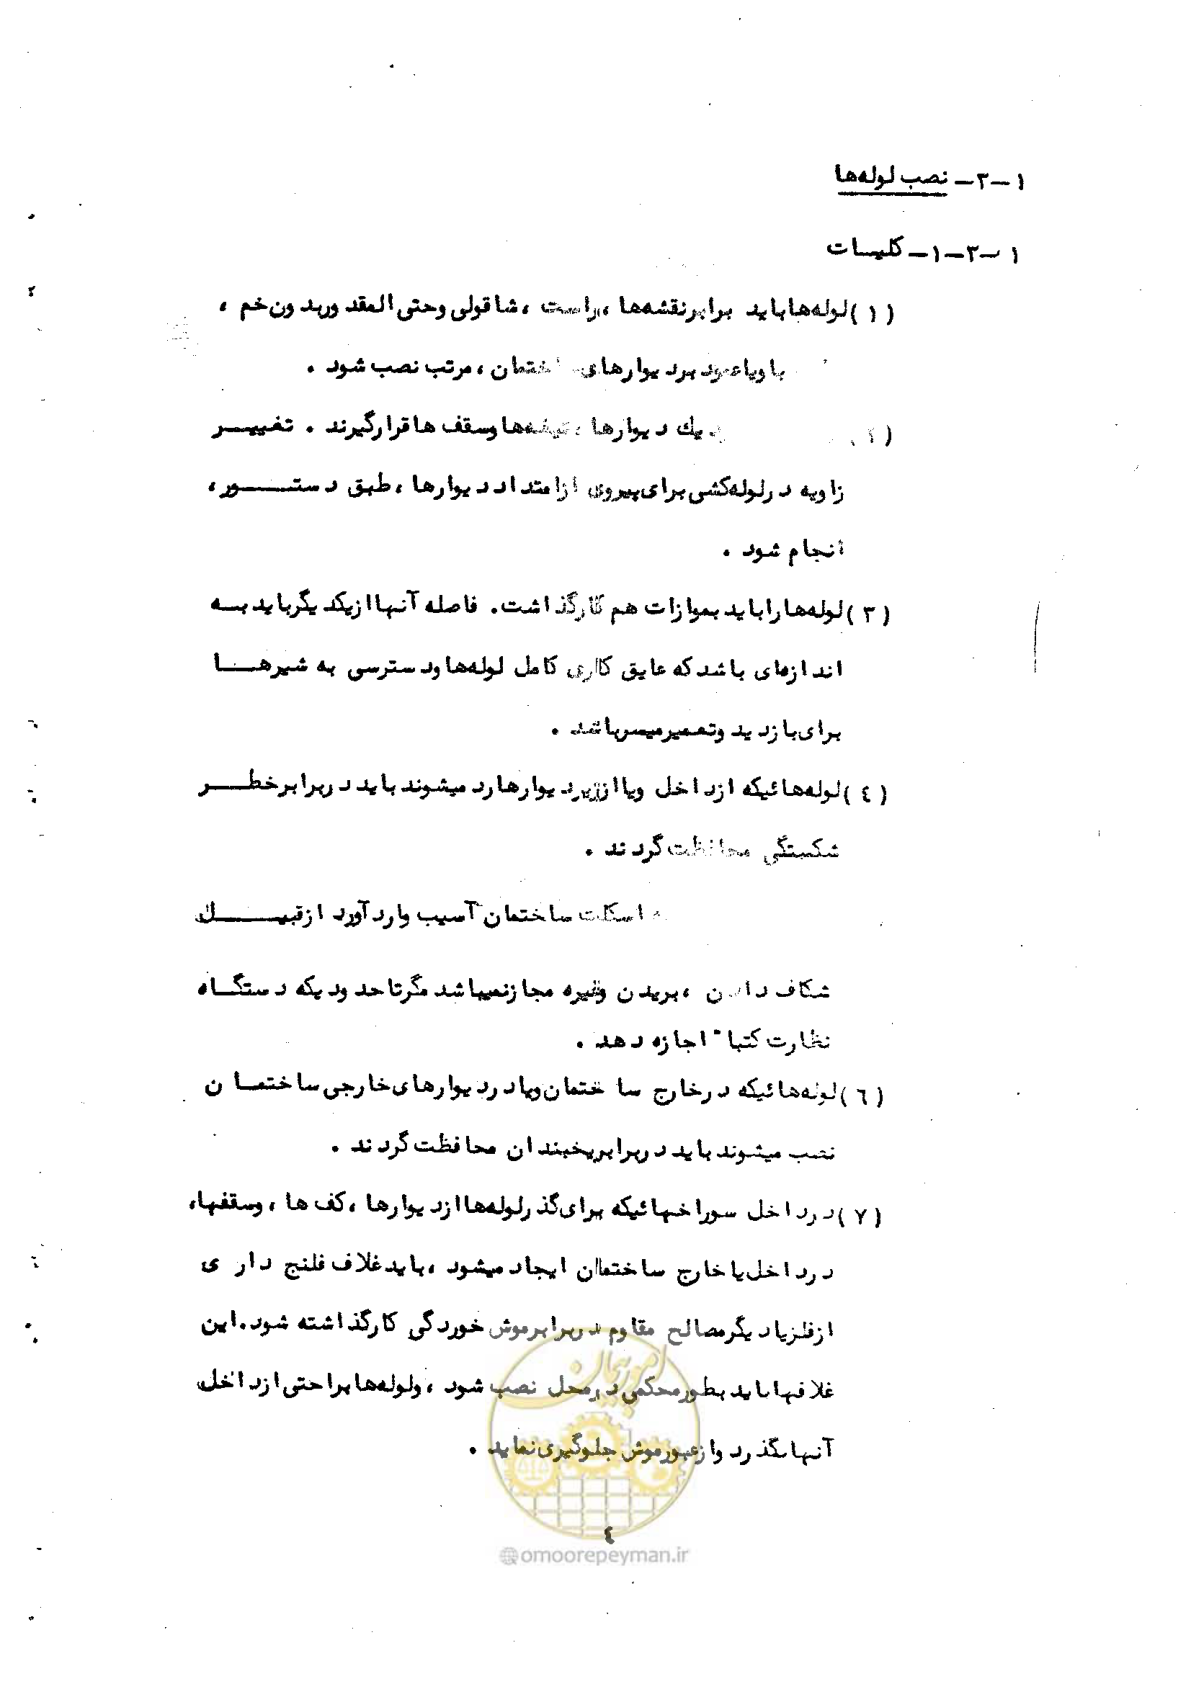 ۱-۳- نصب لوله‌ها
۱-۳-۱- کلیات
(۱) لوله‌ها باید برابر نقشه‌ها، راست، شاقولی و حتی المقدور بدون خم،
با و یا عمود بر دیوارهای ساختمان، مرتب نصب شود.
(۲) دیک دیوارها، تیغه‌ها و سقف ها قرار گیرند. تغییر
زاویه در لوله‌کشی برای پیروی از امتداد دیوارها، طبق دستور،
انجام شود.
(۳) لوله‌ها را باید بموازات هم کار گذاشت. فاصله آنها از یکدیگر باید به
اندازه‌ای باشد که عایق کاری کامل لوله‌ها و دسترسی به شیرها
برای بازدید و تعمیر میسر باشد.
(٤) لوله‌هائیکه از داخل و یا از زیر دیوارها رد میشوند باید در برابر خطر
شکستگی محافظت گردند.
اسکلت ساختمان آسیب وارد آورد از قبیل
شکاف دادن، بریدن و غیره مجاز نمیباشد مگر تا حدودیکه دستگاه
نظارت کتبا" اجازه دهد.
(٦) لوله‌هائیکه در خارج ساختمان و یا در دیوارهای خارجی ساختمان
نصب میشوند باید در برابر یخبندان محافظت گردند.
(۷) در داخل سوراخهائیکه برای گذر لوله‌ها از دیوارها، کف ها، و سقفها،
در داخل یا خارج ساختمان ایجاد میشود، باید غلاف فلنج داری
از فلز یا دیگر مصالح مقاوم در برابر موش خوردگی کار گذاشته شود. این
غلافها باید بطور محکمی در محل نصب شود، و لوله‌ها براحتی از داخل
آنها بگذرد و از عبور موش جلوگیری نماید.
امور پیمان
٤
@omoorepeyman.ir